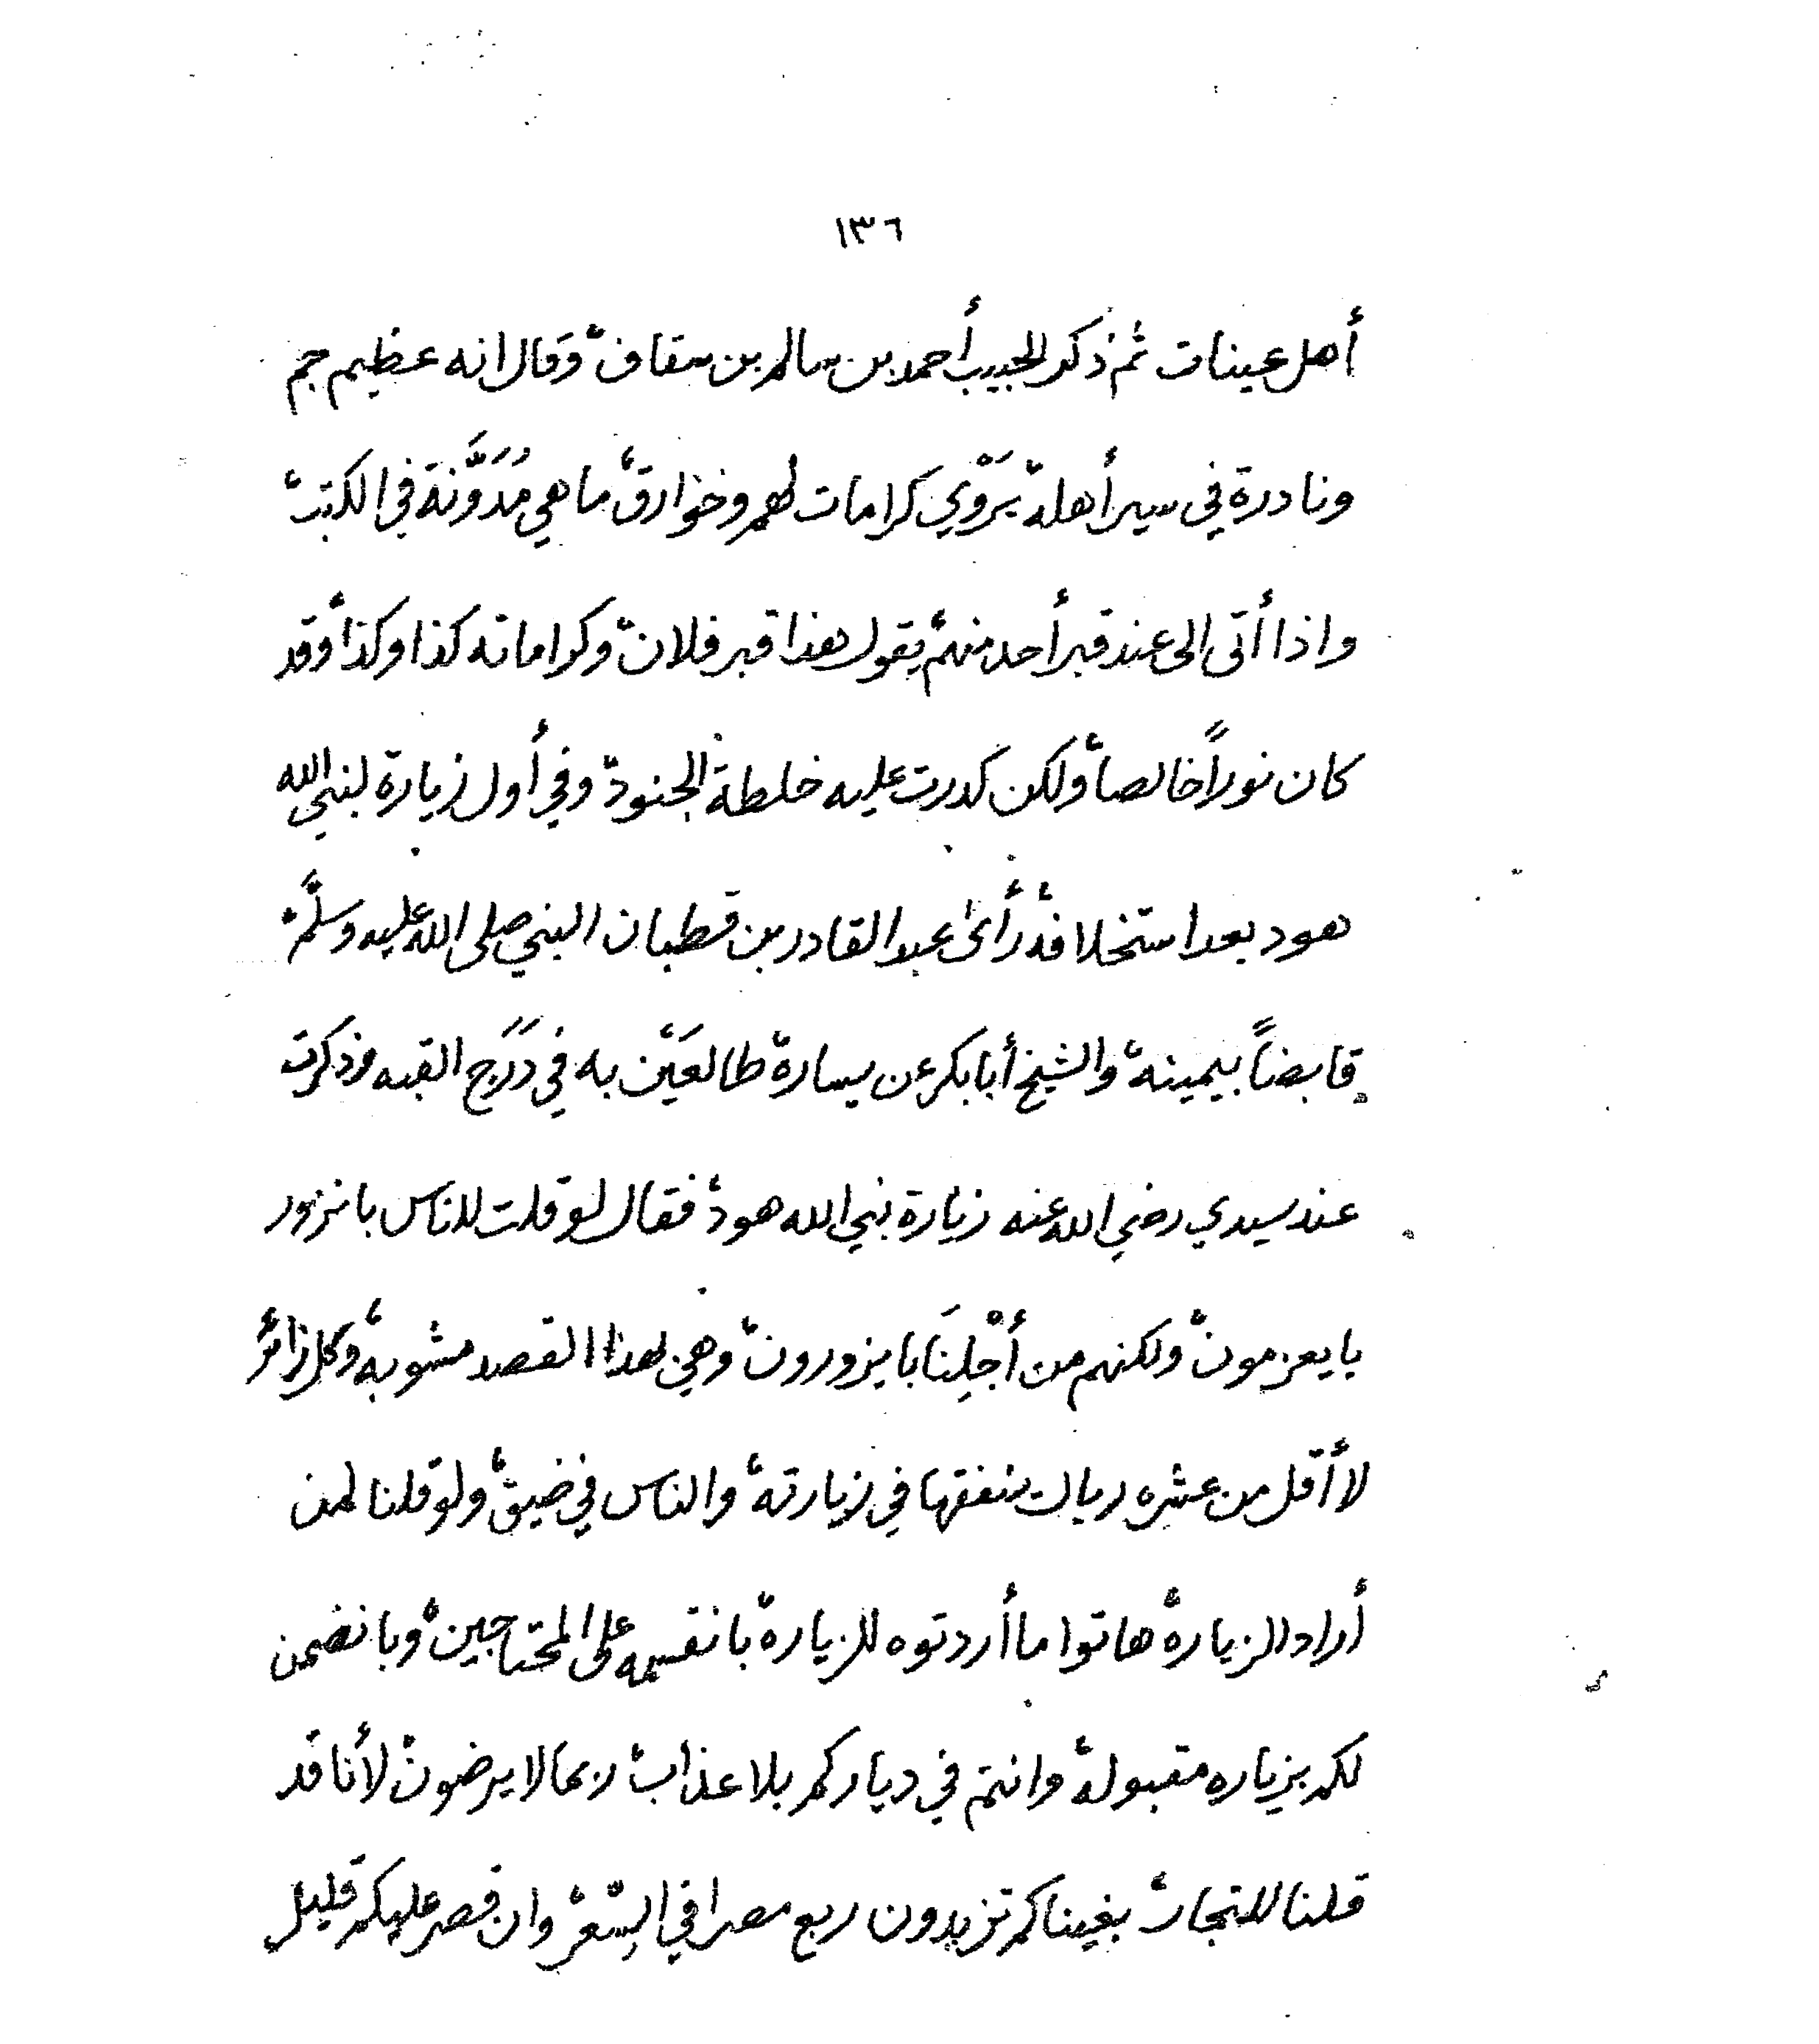 ١٣٦
أهل عينات ثم ذكر الحبيب أحمد بن سالم بن سقاف، وقال انه عظيم جم
ونادرة في سير أهله، يَرْوِي كرامات لهم وخوارق، ما هي مُدَوَّنَة في الكتب،
واذا أتى الى عند قبر أحد منهم، يقول هذا قبر فلان، وكراماته كذا وكذا، وقد
كان نوراً خالصا، ولكن كدرت عليه خلطة الجنود، وفي أول زيارة لنبي الله
هود بعد استخلافه، رأى عبد القادر بن قطبان النبي صلى الله عليه وسلَّم،
قابضاً بيمينه، والشيخ أبا بكر عن يساره، طالعَيْن به في دَرَج القبه، وذكرت
عند سيدي رضي الله عنه زيارة نبي الله هود، فقال لو قلت للناس با نزور
با يعزمون، ولكنهم من أجْلِنَا با يزورون، وهي بهذا القصد مشوبه، وكل زائر،
لا أقل من عشره ريال ينفقها في زيارته، والناس في ضيق، ولو قلنا لمن
أراد الزياره، هاتوا ما أردتوه للزياره، با نقسمه على المحتاجين، وبا نضمن
لكم بزياره مقبوله، وانتم في دياركم بلا عذاب، ربما لا يرضون، لأنا قد
قلنا للتجار، بغيناكم تزيدون ربع مصرا في السِّعْر، وان قصر عليكم قليل